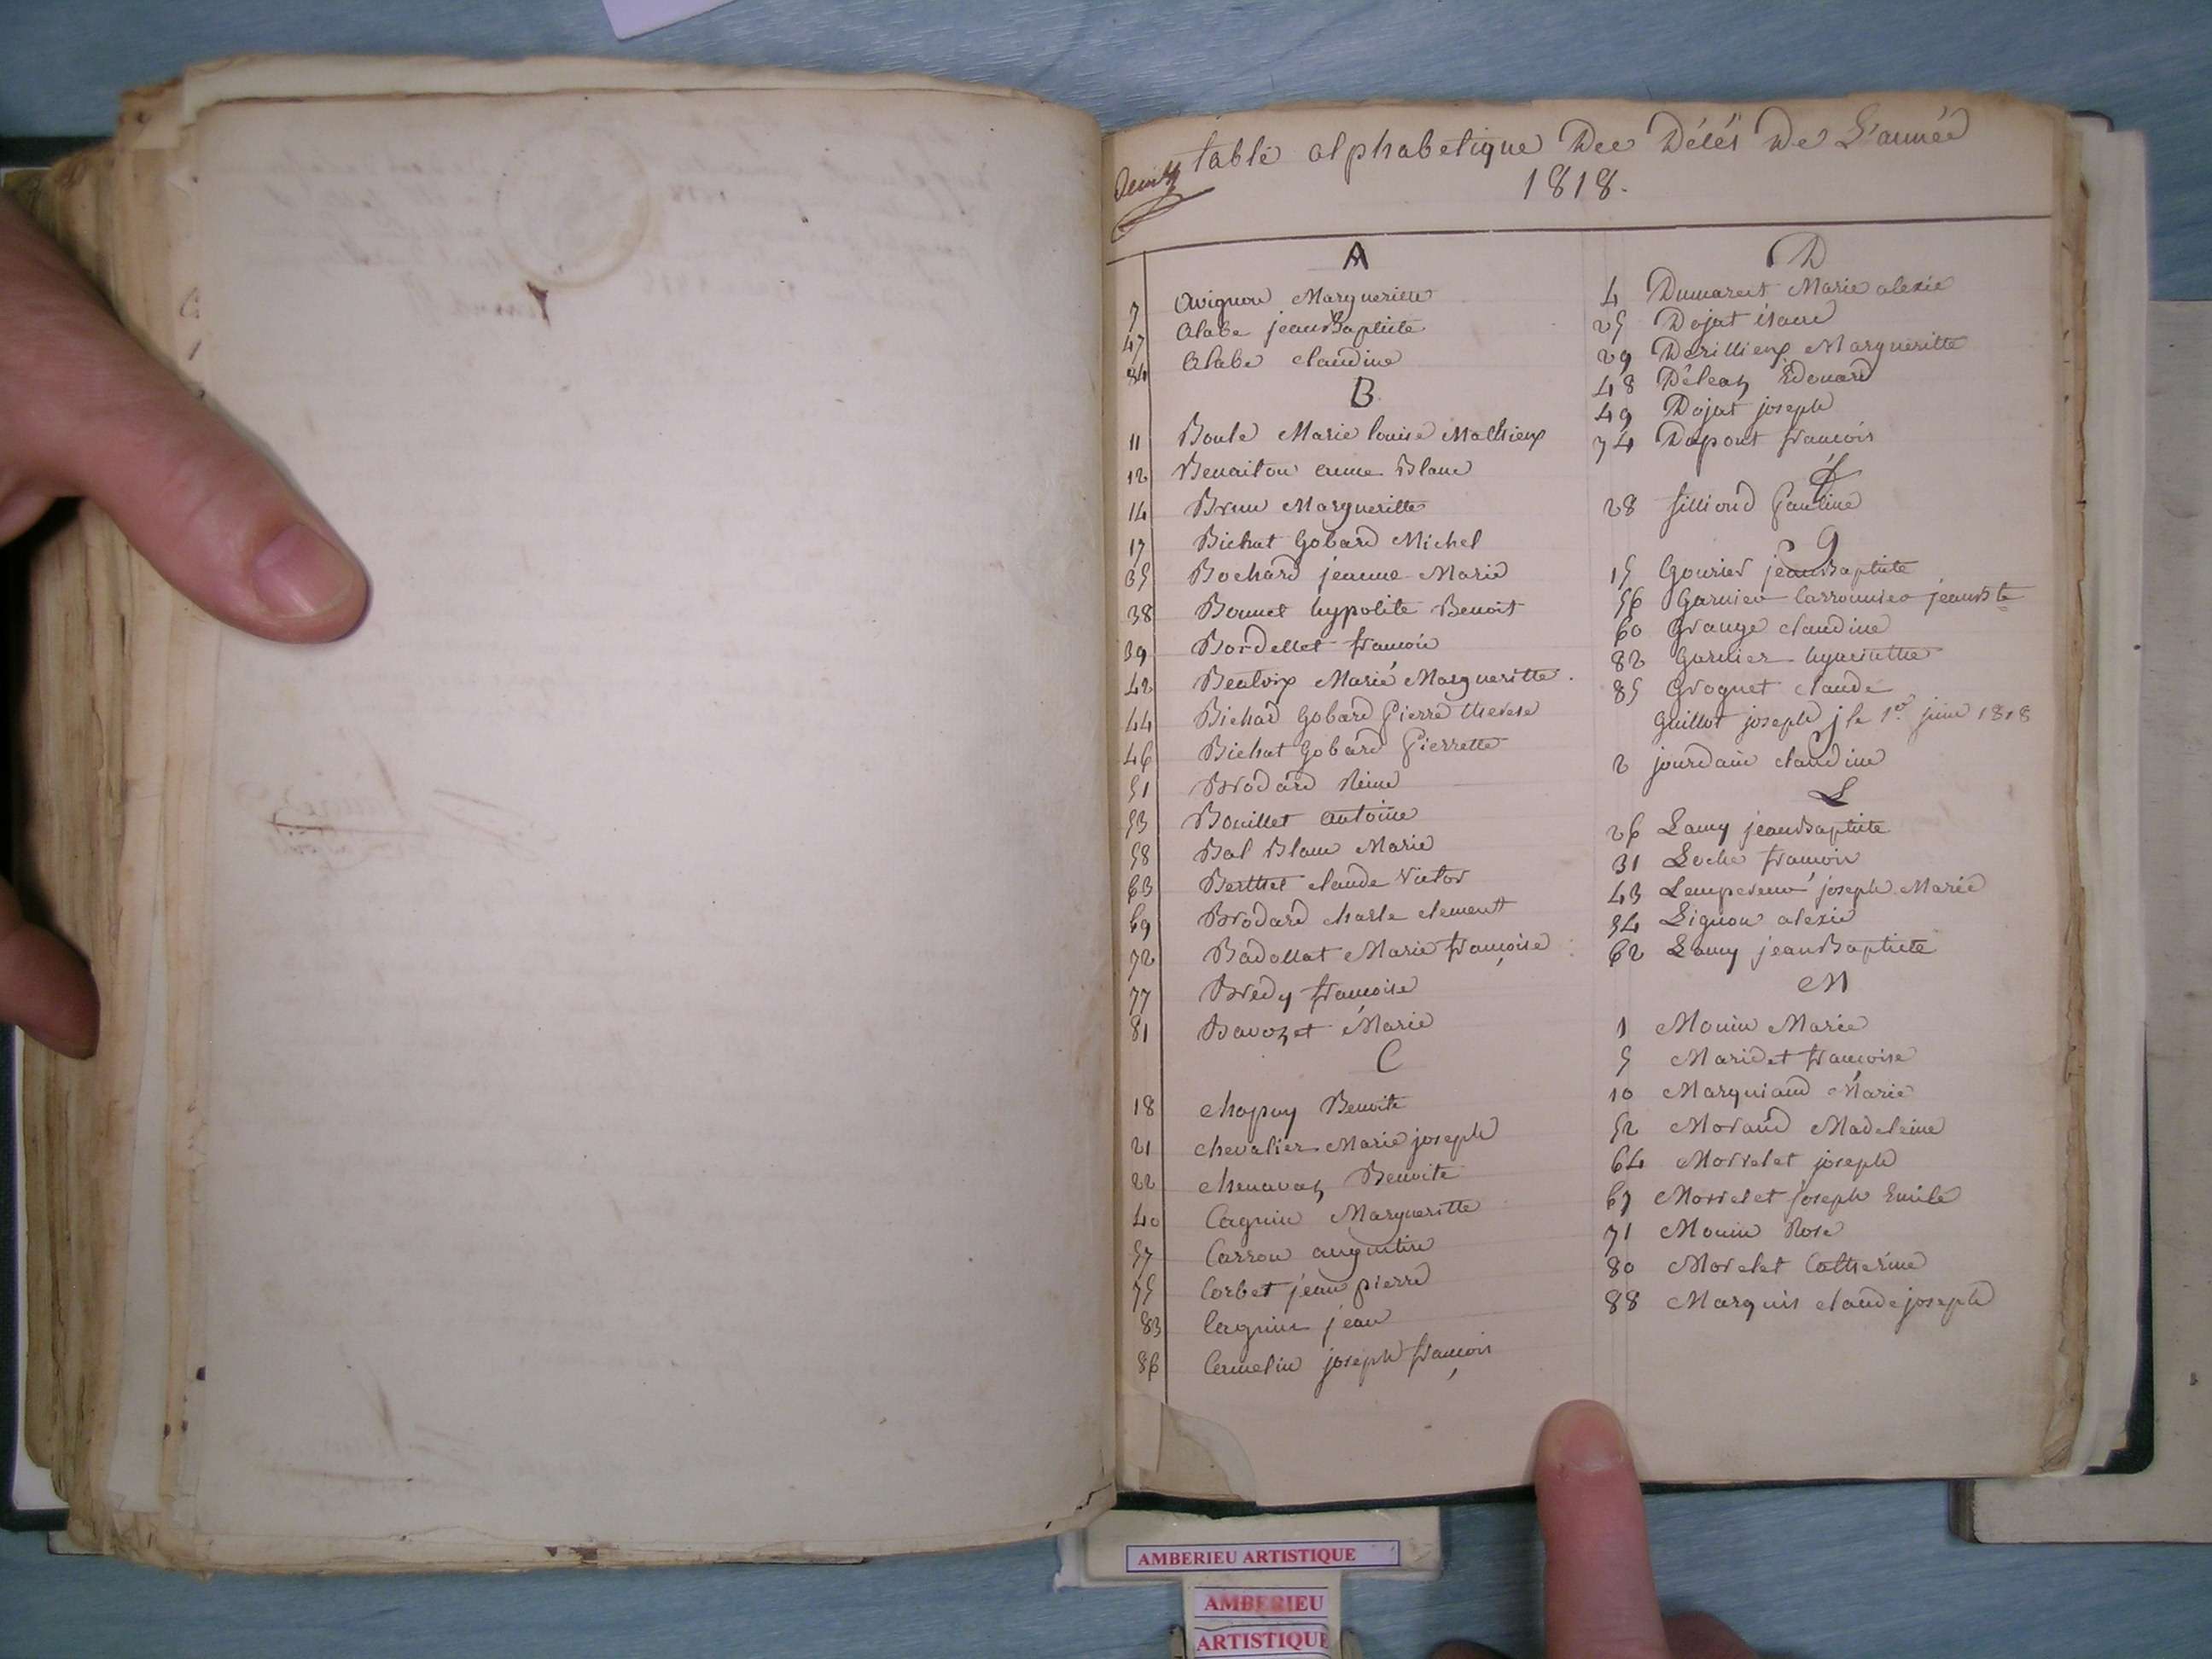 table alphabetique Des Délés De L'année
1818.
A
7 Avignon Margueritte
47 Alabe jean Baptiste
84 Alabe claudine
B
11 Boule Marie louise Mathieux
12 Benaiton anne Blanc
14 Brun Margueritte
17 Bichat Gobard Michel
35 Bochard jeanne Marie
38 Bonnet hypolite Benoit
39 Bordellet francois
42 Marie Margueritte
44 Bichad Gobard Pierre therese
46 Bichat Gobard Pierrette
51 Brodard Reine
53 Bouillet antoine
58 Bal Blanc Marie
63 Berthet claude Victor
69 Brodard charle clement
72 Badollat Marie françoise
77 Bredy francoise
81 Bavozet Marie
C
18 chapuy Benoite
21 chevalier Marie joseph
22 chenavaz Benoite
40 Cagnin Margueritte
57 Carron augustine
75 Corbet jean pierre
83 Cagnin jean
86 joseph françois
D
4 Dumarest Marie alexie
25 Dojat isaure
29 Derillieux Margueritte
48 Déleaz Edouard
49 Dojat joseph
74 Dupont francois
f
28 filliond Pauline
G
15 Gourier jean Baptiste
56 Garnier Carronnier jean Bte
60 Grange claudine
82 Garnier hyacinthe
85 Grognet claude
Guillot joseph le 1er juin 1818
j
2 jourdain claudine
L
26 Lamy jean Baptiste
31 Loche francois
43 joseph Marie
54 Lignon alexie
62 Lamy jean Baptiste
M
1 Monin Marie
5 Maridet francoise
10 Marguiand Marie
52 Morand Madeleine
64 Morrelet joseph
67 Morrelet joseph Emile
71 Monin Rose
80 Morelet Catherine
88 Marquis claude joseph
AMBERIEU ARTISTIQUE
AMBERIEU
ARTISTIQUE